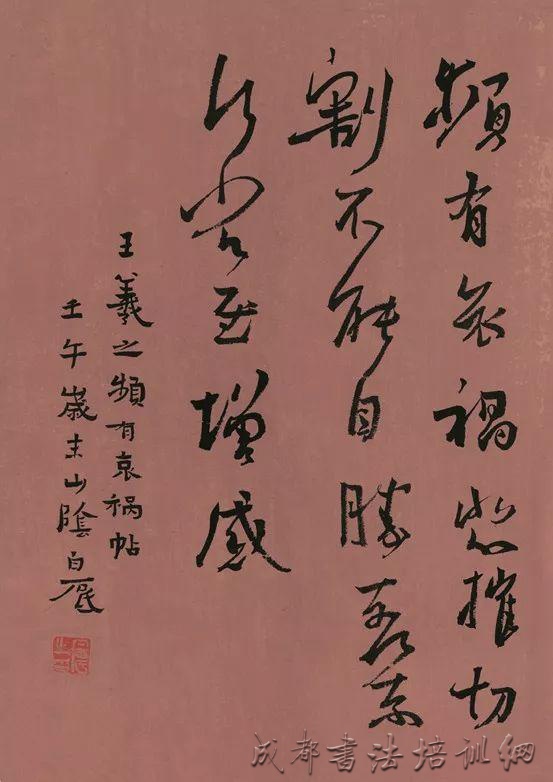 頻有哀禍悲摧切
割不能自勝奈何奈
何省慰增感
王羲之頻有哀禍帖
壬午歲末山陰白砥
成都書法培訓網